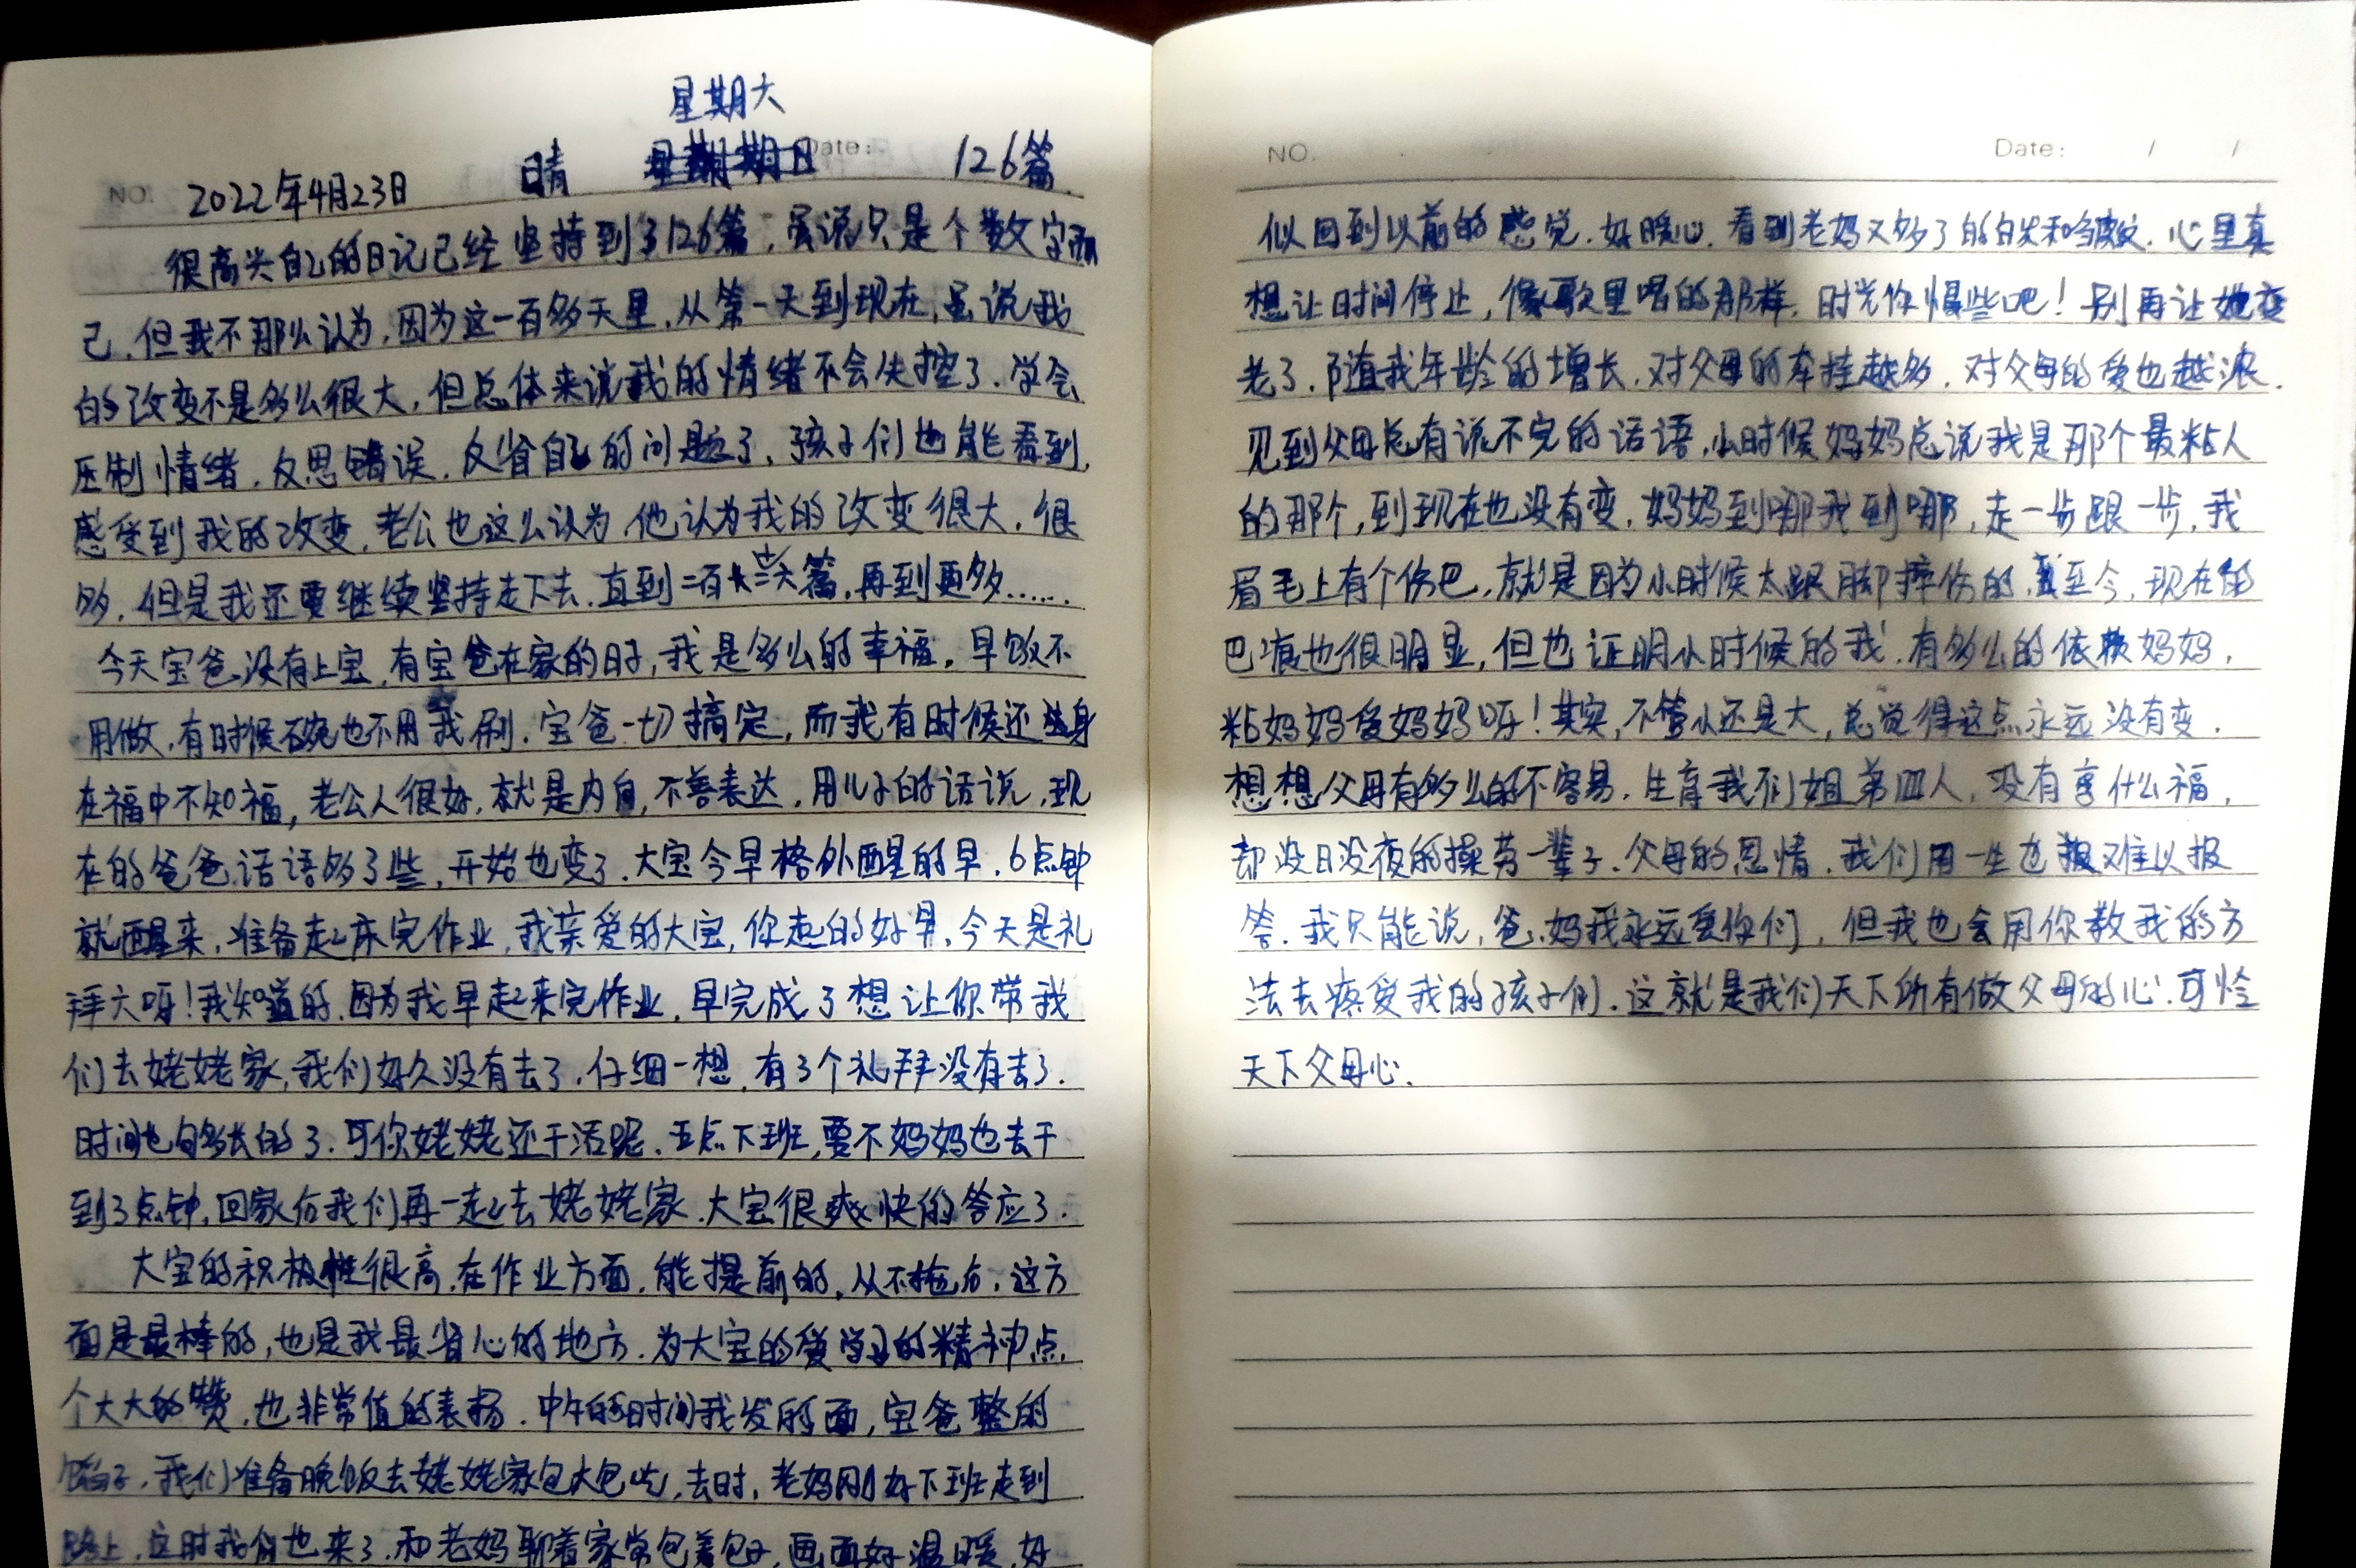 星期六
NO. 2022年4月23日 晴 Date: 126篇
很高兴自己的日记已经坚持到了126篇，虽说只是个数字而
己，但我不那么认为，因为这一百多天里，从第一天到现在，虽说我
的改变不是多么很大，但总体来说我的情绪不会失控了．学会
压制情绪．反思错误．反省自己的问题了，孩子们也能看到，
感受到我的改变，老公也这么认为．他认为我的改变很大．很
多．但是我还要继续坚持走下去．直到二百篇，再到更多......
今天宝爸没有上宝，有宝爸在家的日子，我是多么的幸福．早饭不
用做，有时候碗也不用我刷．宝爸一切搞定，而我有时候还生身
在福中不知福，老公人很好．就是内向，不善表达．用儿子的话说，现
在的爸爸话语多了些，开始也变了．大宝今早格外醒的早．6点钟
就醒来，准备起床完作业，我亲爱的大宝，你起的好早．今天是礼
拜六呀！我知道的．因为我早起来完作业，早完成了想让你带我
们去姥姥家，我们好久没有去了．仔细一想，有3个礼拜没有去了．
时间也够长的了．可你姥姥还干活呢．五点下班，要不妈妈也去干
到3点钟，回家后我们再一起去姥姥家．大宝很爽快的答应了．
大宝的积极性很高，在作业方面，能提前的，从不拖后，这方
面是最棒的，也是我最省心的地方．为大宝的爱学习的精神点
个大大的赞，也非常值的表扬．中午的时间我发的面，宝爸整的
馅子，我们准备晚饭去姥姥家包大包吃，去时，老妈刚好下班走到
路上，这时我们也来了．和老妈聊着家常包着包子，画面好温暖，好
NO. Date: / /
似回到以前的感觉．好暖心．看到老妈又多了的白发和皱纹，心里真
想让时间停止，像歌里唱的那样，时光你慢些吧！别再让她变
老了．随我年龄的增长．对父母的牵挂越多．对父母的爱也越浓．
见到父母总有说不完的话语，小时候妈妈总说我是那个最粘人
的那个，到现在也没有变，妈妈到哪我到哪，走一步跟一步，我
眉毛上有个伤巴，就是因为小时候太跟脚摔伤的．至今，现在的
巴痕也很明显，但也证明小时候的我，有多么的依赖妈妈，
粘妈妈爱妈妈呀！其实，不管小还是大，总觉得这点永远没有变．
想想父母有多么的不容易．生育我们姐弟四人，没有享什么福，
却没日没夜的操劳一辈子．父母的恩情．我们用一生也难以报
答．我只能说，爸、妈我永远爱你们，但我也会用你教我的方
法去疼爱我的孩子们．这就是我们天下所有做父母的心．可怜
天下父母心．